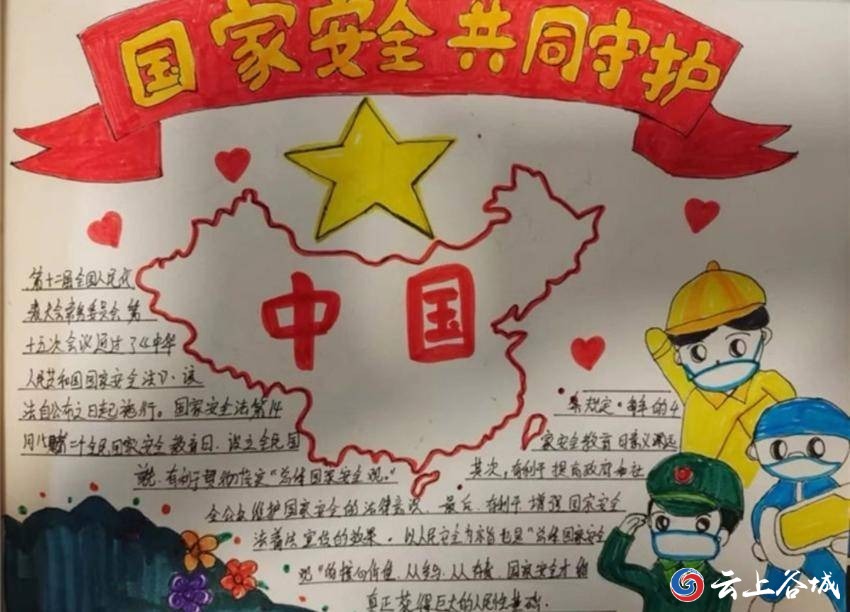 国家安全 共同守护
中国
第十二届全国人民代
表大会常务委员会第
十五次会议通过了《中华
人民共和国国家安全法》,该
法自公布之日起施行。国家安全法第14
条规定,每年的4
全民国家安全教育日,设立全民国
家安全教育日意义深远
有利于 贯彻落实"总体国家安全观。"
其次,有利于提高政府和社
全公众维护国家安全的法律意识,最后,有利于增强国家安全
法普法宣传的效果。以人民安全为宗旨也是"总体国家安全
观"的核心价值
国家安全才能
真正获得巨大的人民性基础.
云上谷城